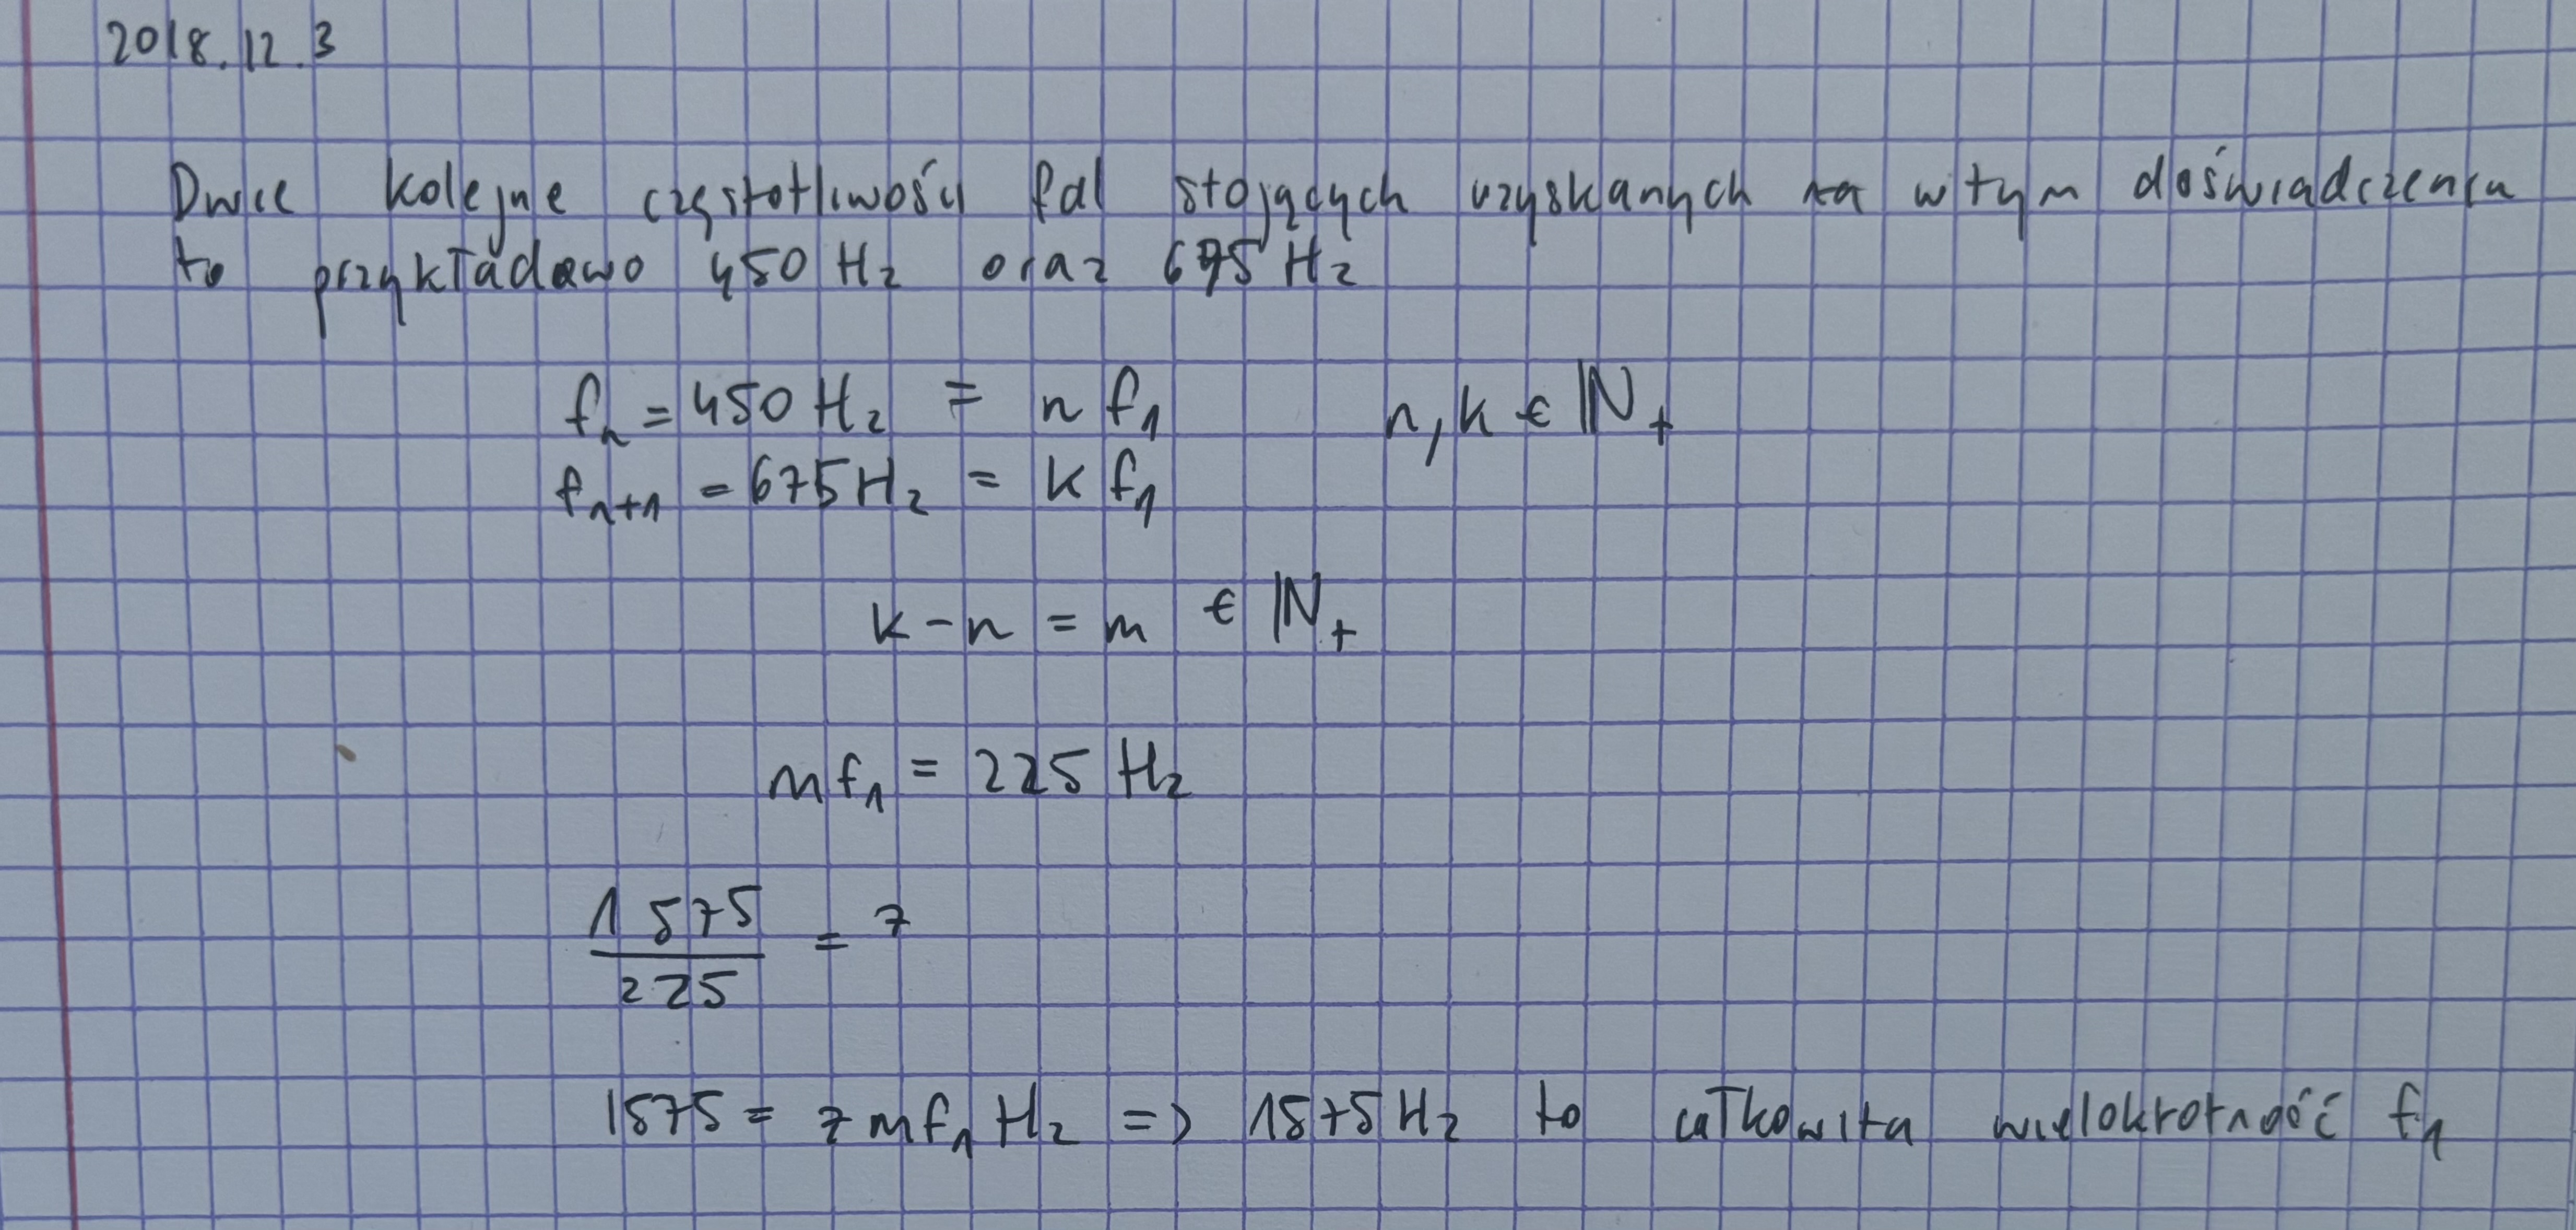 2018.12.3
Dwie kolejne częstotliwości fal stojących uzyskanych na w tym doświadczeniu
to przykładowo 450 Hz oraz 675 Hz
fₙ = 450 Hz = n f₁ n, k ∈ ℕ₊
fₙ₊₁ = 675 Hz = k f₁
k - n = m ∈ ℕ₊
m f₁ = 225 Hz
1575/225 = 7
1575 = 7 m f₁ Hz => 1575 Hz to całkowita wielokrotność f₁